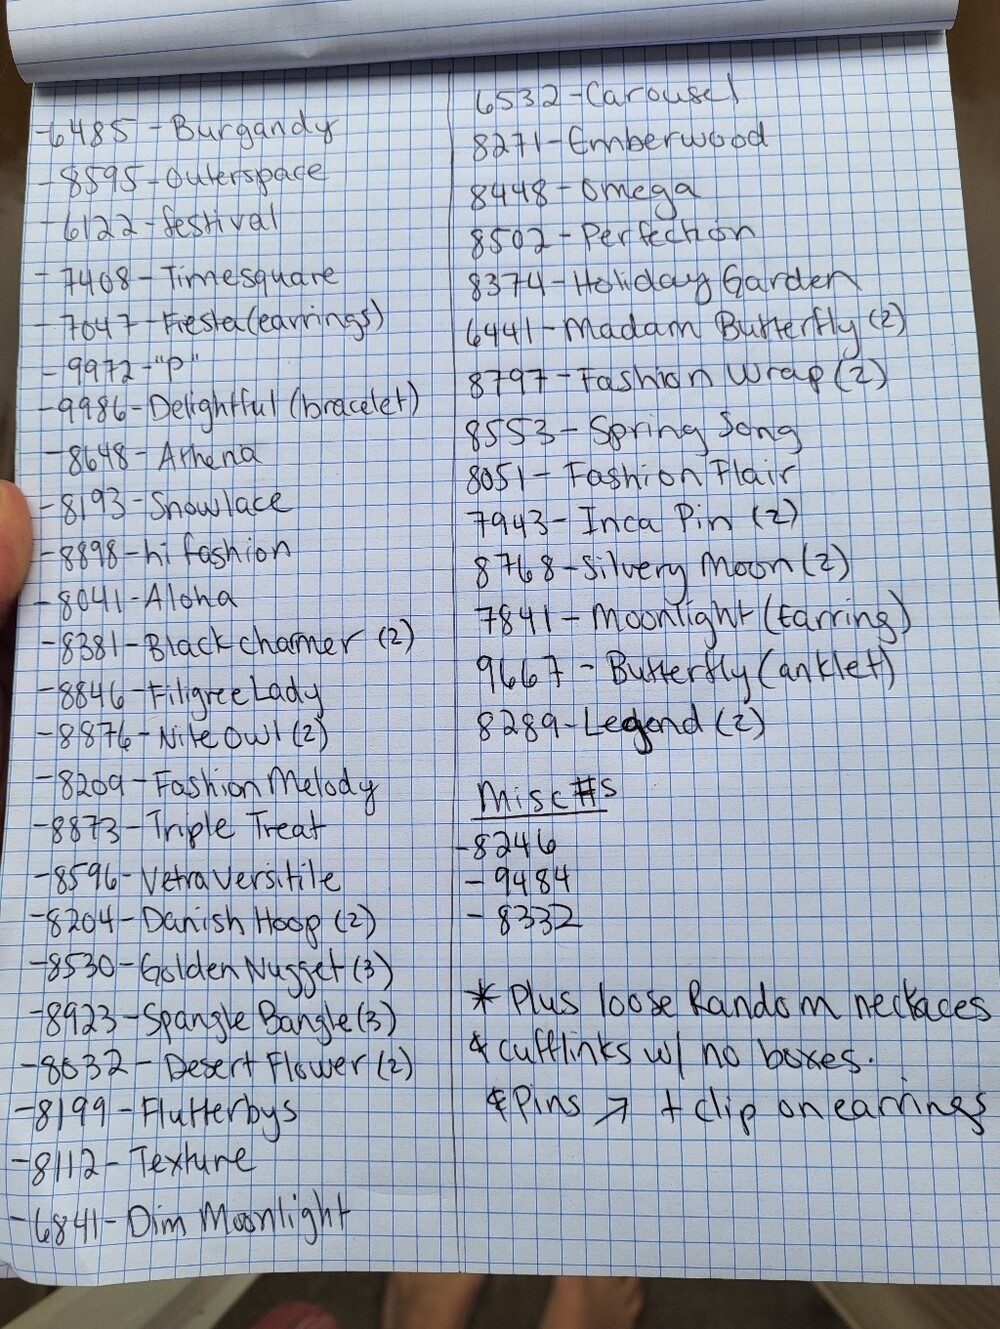 -6485-Burgandy
-8595-Outerspace
-6122-festival
-7408-Timesquare
-7047-Fiesta(earrings)
-9972-"P"
-9986-Delightful (bracelet)
-8648-Athena
-8193-Snowlace
-8898-hi fashion
-8041-Aloha
-8381-Black charmer (2)
-8846-Filigree Lady
-8876-Nite Owl (2)
-8209-Fashion Melody
-8873-Triple Treat
-8596-Vetra Versitile
-8204-Danish Hoop (2)
-8530-Golden Nugget (3)
-8923-Spangle Bangle (3)
-8632-Desert Flower (2)
-8199-Flutterbys
-8112-Texture
-6841-Dim Moonlight
6532-Carousel
8271-Emberwood
8448-Omega
8502-Perfection
8374-Holiday Garden
6441-Madam Butterfly (2)
8797-Fashion Wrap (2)
8553-Spring Song
8051-Fashion Flair
7943-Inca Pin (2)
8768-Silvery Moon (2)
7841-Moonlight (Earring)
9667-Butterfly (anklet)
8289-Legend (2)
Misc #s
-8246
-9484
-8332
* Plus loose Random necklaces
& cufflinks w/ no boxes.
& Pins → + clip on earrings